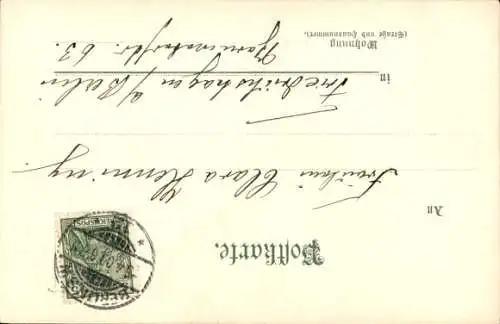 Postkarte.
An
Fräulein Clara Henning.
in
Friedrichshagen a/Berlin
Wohnung
(Straße und Hausnummer).
63.